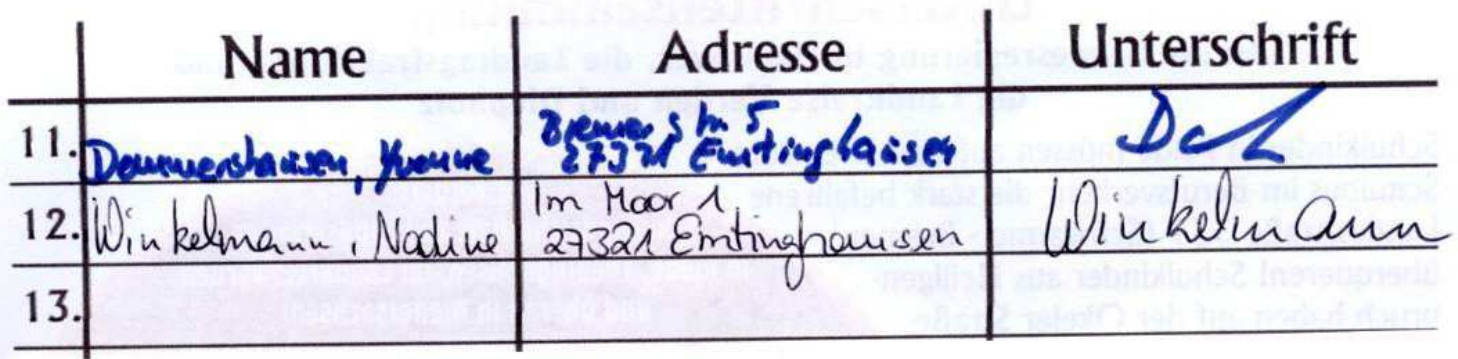 Name Adresse Unterschrift
11. Dammershausen, Yvonne Bremer Str. 5
27321 Emtinghausen
12. Winkelmann, Nadine Im Moor 1
27321 Emtinghausen Winkelmann
13.